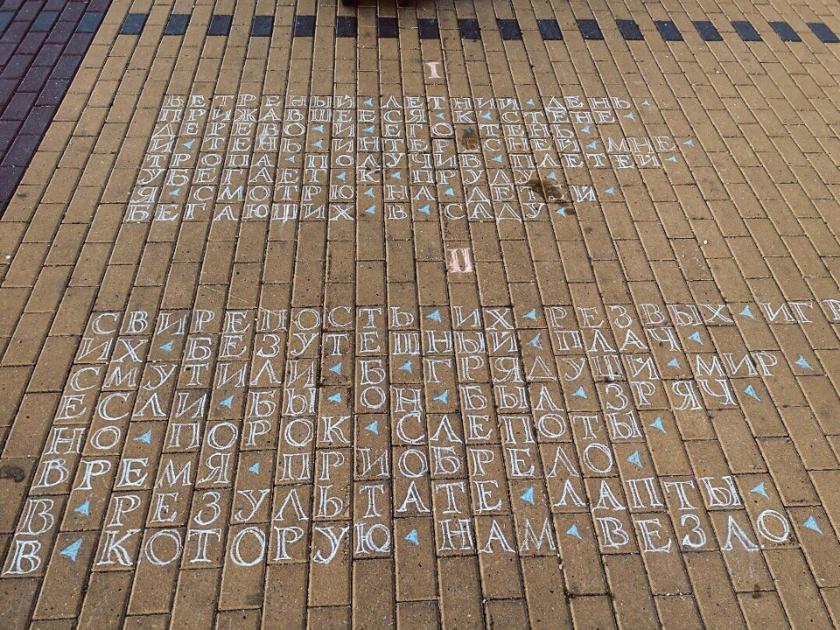 I
ВЕТРЕНЫЙ ЛЕТНИЙ ДЕНЬ
ПРИЖАВШЕЕСЯ К СТЕНЕ
ДЕРЕВО И ЕГО ТЕНЬ
И ТЕНЬ ИНТЕРЕСНЕЙ МНЕ
ТРОПА ПОЛУЧИВ ПЛЕТЕЙ
УБЕГАЕТ К ПРУДУ
Я СМОТРЮ НА ДЕТЕЙ
БЕГАЮЩИХ В САДУ
II
СВИРЕПОСТЬ ИХ РЕЗВЫХ ИГР
ИХ БЕЗУТЕШНЫЙ ПЛАЧ
СМУТИЛИ Б ГРЯДУЩИЙ МИР
ЕСЛИ БЫ ОН БЫЛ ЗРЯЧ
НО ПОРОК СЛЕПОТЫ
ВРЕМЯ ПРИОБРЕЛО
В РЕЗУЛЬТАТЕ ЛАПТЫ
В КОТОРУЮ НАМ ВЕЗЛО